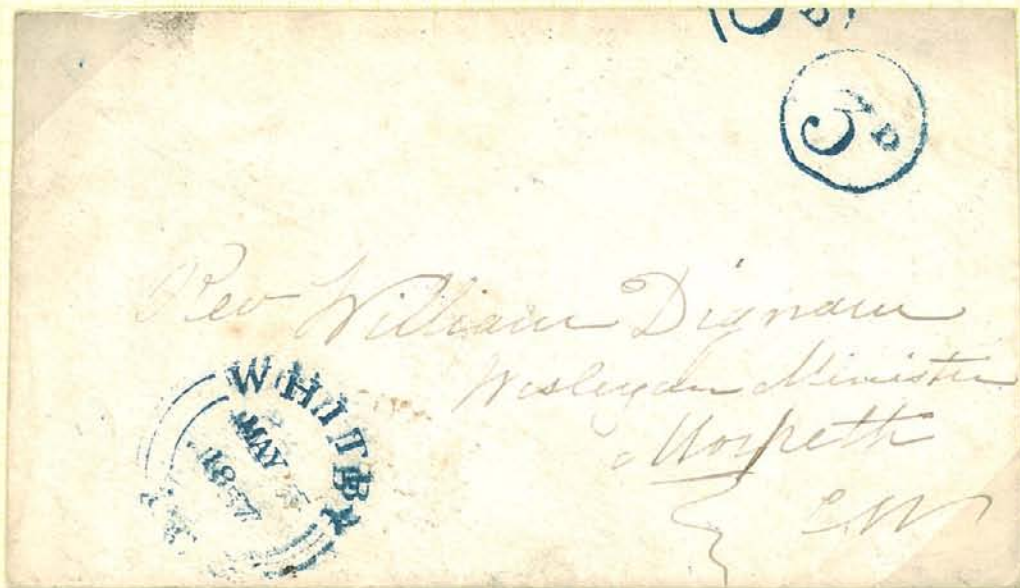 3D
3D
Rev William Dignam
Wesleyan Minister
Morpeth
C.W
WHITBY
MAY
1857